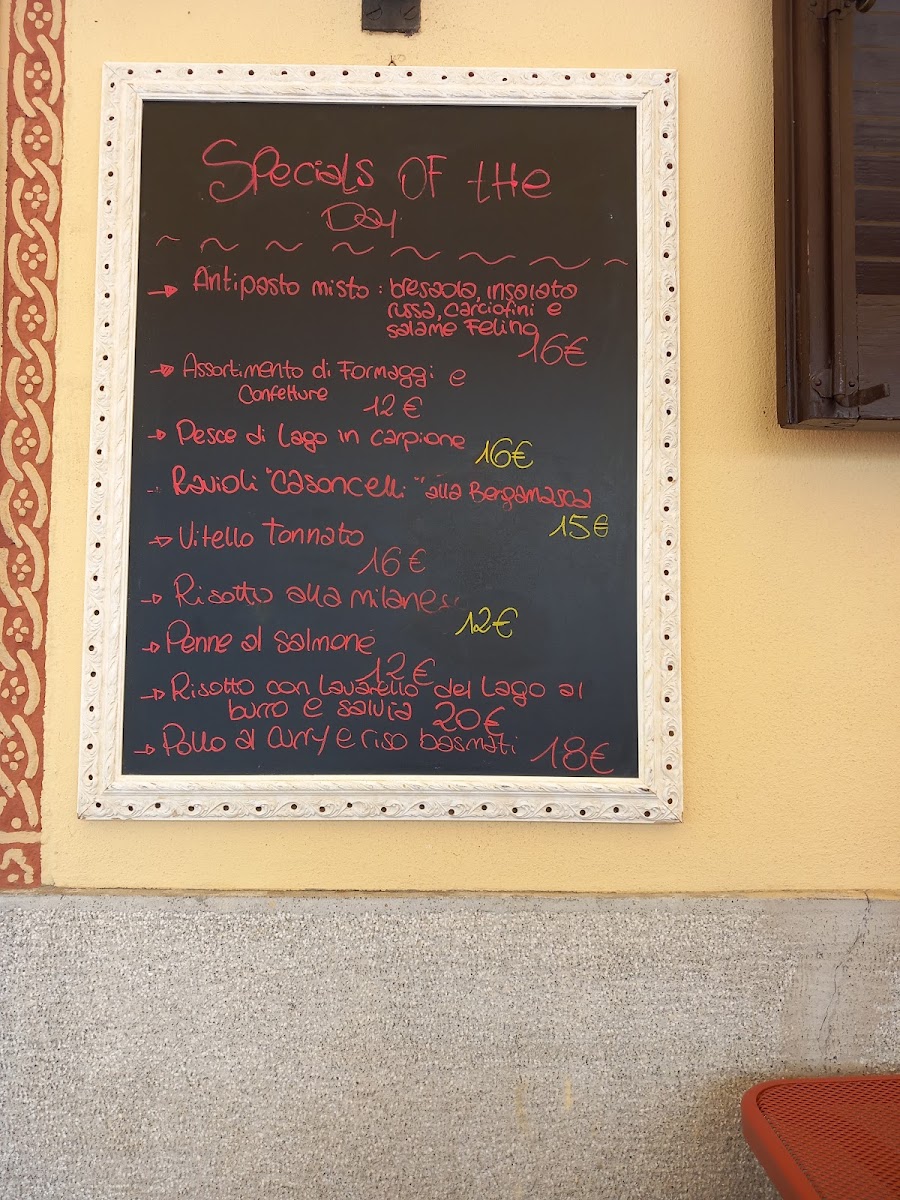 Specials of the
Day
Antipasto misto: bresaola, insalata
russa, carciofini e
salame Felino
16€
Assortimento di Formaggi e
Confetture
12€
Pesce di Lago in carpione
16€
Ravioli "Casoncelli" alla Bergamasca
15€
Vitello Tonnato
16€
Risotto alla milanese
12€
Penne al salmone
12€
Risotto con Lavarello del Lago al
burro e salvia 20€
Pollo al Curry e riso basmati 18€